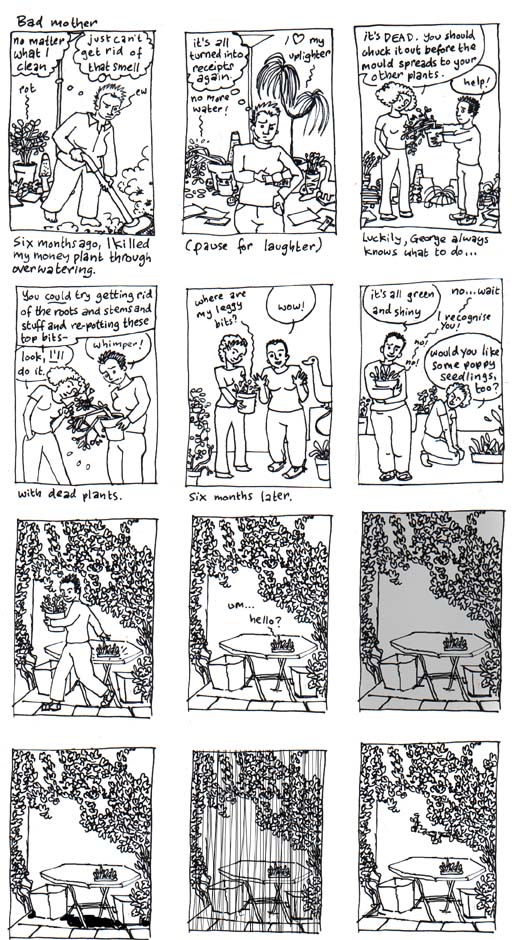 Bad mother
no matter
what I
clean
just can't
get rid of
that smell
rot
ew
Six months ago, I killed
my money plant through
overwatering.
it's all
turned into
receipts
again.
no more
water!
I ♡ my
uplighter
(pause for laughter)
it's DEAD. You should
chuck it out before the
mould spreads to your
other plants.
help!
Luckily, George always
knows what to do...
You could try getting rid
of the roots and stems and
stuff and re-potting these
top bits-
look, I'll
do it.
whimper!
with dead plants.
where are
my leggy
bits?
wow!
Six months later.
it's all green
and shiny
no...wait
I recognise
you!
no!
no!
would you like
some poppy
seedlings,
too?
um...
hello?